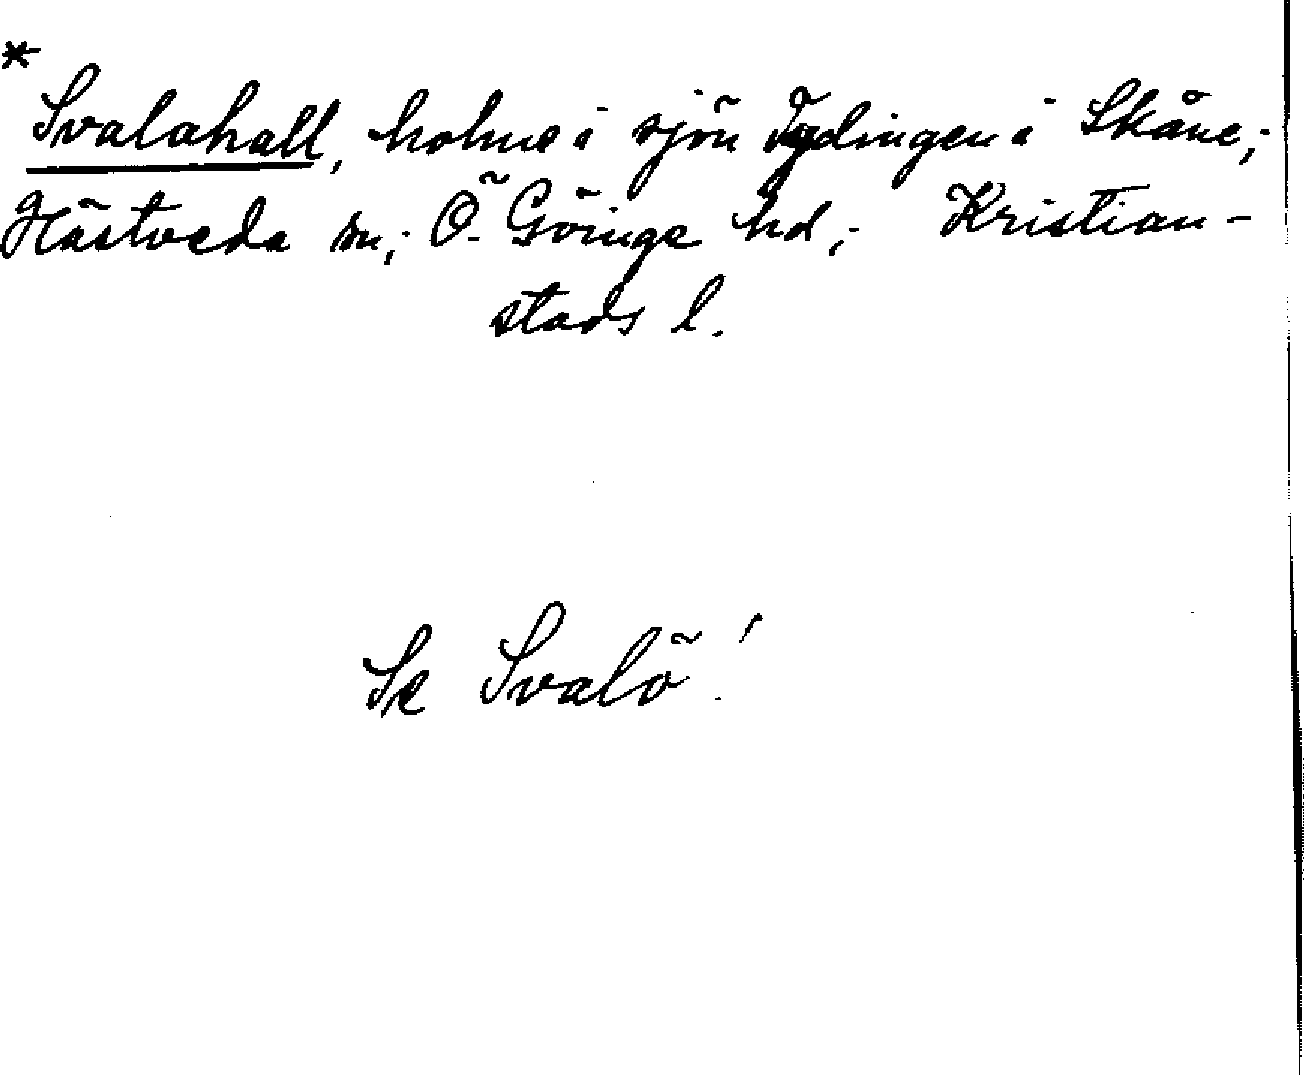 *
Svalahall, holme i sjön Tydingen i Skåne,
Hästveda sn, Ö. Göinge hd, Kristian-
stads l.
Se Svalö!